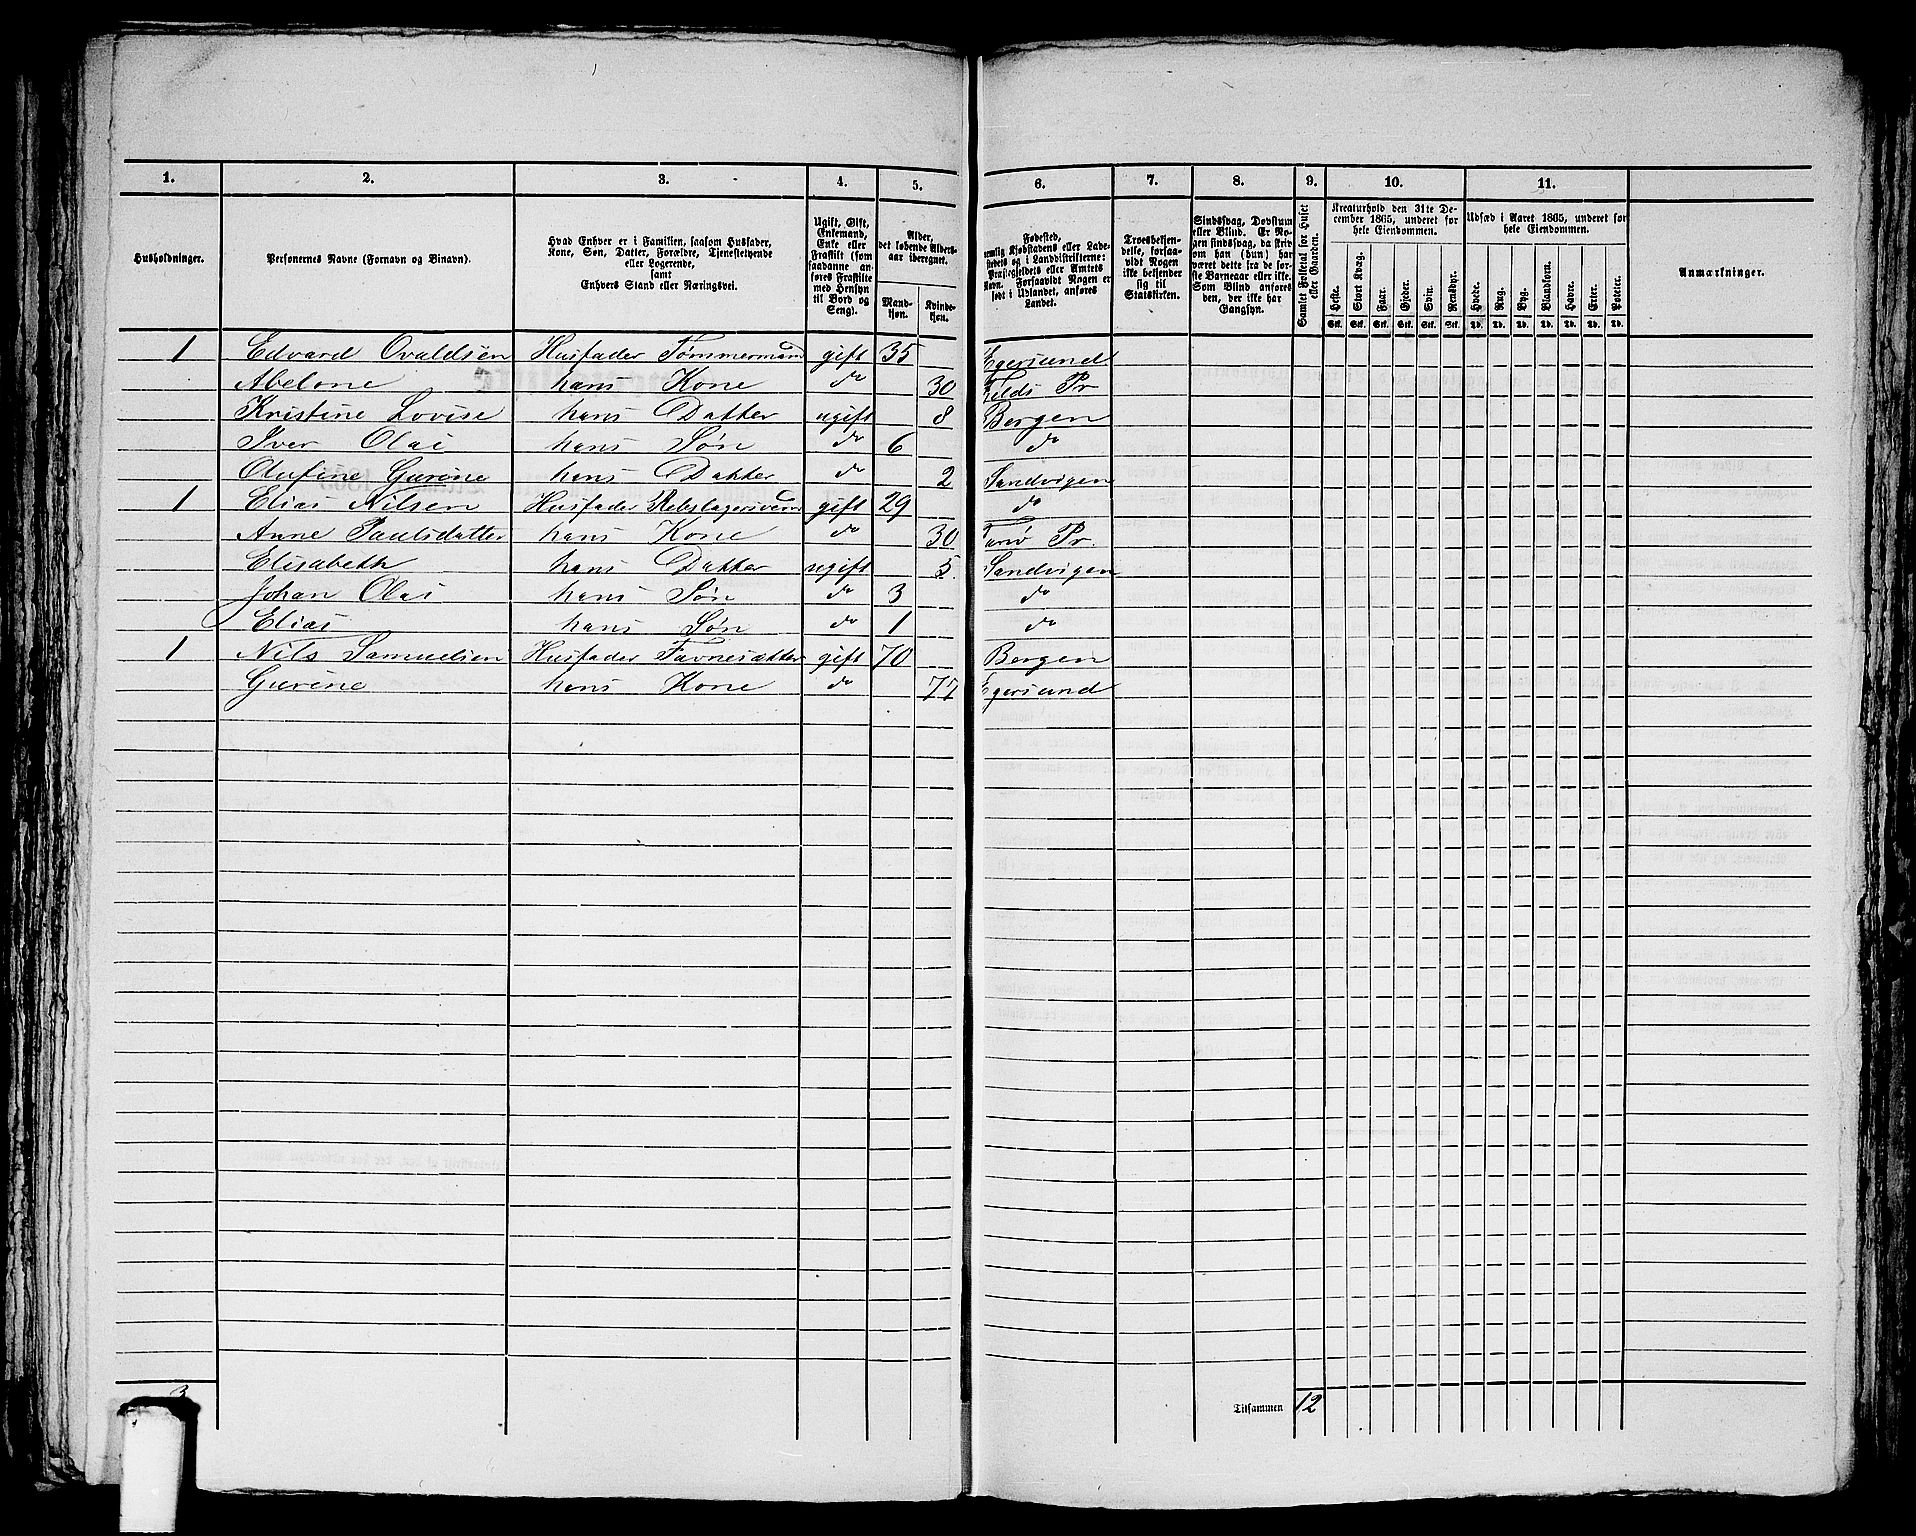 1. 2. 3. 4. 5. 6. 7. 8. 9. 10. 11.
Husholdninger.
Personernes Navne (Fornavn og Binavn).
Hvad Enhver er i Familien, saasom Husfader,
Kone, Søn, Datter, Forældre, Tjenestetyende
eller Logerende,
samt
Enhvers Stand eller Næringsvei.
Ugift, Gift,
Enkemand,
Enke eller
Fraskilt (som
saadanne an-
føres Fraskilte
med Hensyn
til Bord og
Seng).
Alder,
det løbende Alders-
aar iberegnet.
Mand-
kjøn.
Kvinde-
kjøn.
Fødested,
nemlig Kjøbstadens eller Lade-
stedets og i Landdistrikterne:
Præstegjeldets eller Amtets
Navn. Forsaavidt Nogen er
født i Udlandet, anføres
Landet.
Troesbekjen-
delse, forsaa-
vidt Nogen
ikke bekjender
sig til
Statskirken.
Sindssvag, Døvstum
eller Blind. Er No-
gen sindssvag, da skriv
om han (hun) har
været dette fra de før-
ste Barneaar eller ikke.
Som Blind anføres
den, der ikke har
Gangsyn.
Samlet Folketal for Huset
eller Gaarden.
Kreaturhold den 31te De-
cember 1865, underet for
hele Eiendommen.
Heste. Stort Kvæg. Faar. Gjeder. Svin. Rensdyr.
Stk. Stk. Stk. Stk. Stk. Stk.
Udsæd i Aaret 1865, underet for
hele Eiendommen.
Hvede. Rug. Byg. Blandkorn. Havre. Erter. Poteter.
Td. Td. Td. Td. Td. Td. Td.
Anmærkninger.
1 Edvard Ovaldsen Husfader Tømmermand gift 35 Egersund
Abelone hans Kone do 30 Pr
Kristine Lovise hans Datter ugift 8 Bergen
Iver Olai hans Søn do 6 do
Olufine Gurine hans Datter do 2 Sandvigen
1 Elias Nilsen Husfader Rebslagersvend gift 29 do
Anne Paulsdatter hans Kone do 30 Pr.
Elisabeth hans Datter ugift 5 Sandvigen
Johan Olai hans Søn do 3 do
Elias hans Søn do 1 do
1 Nils Samuelsen Husfader Favnesætter gift 70 Bergen
Gurine hans Kone do 77 Egersund
3 Tilsammen 12